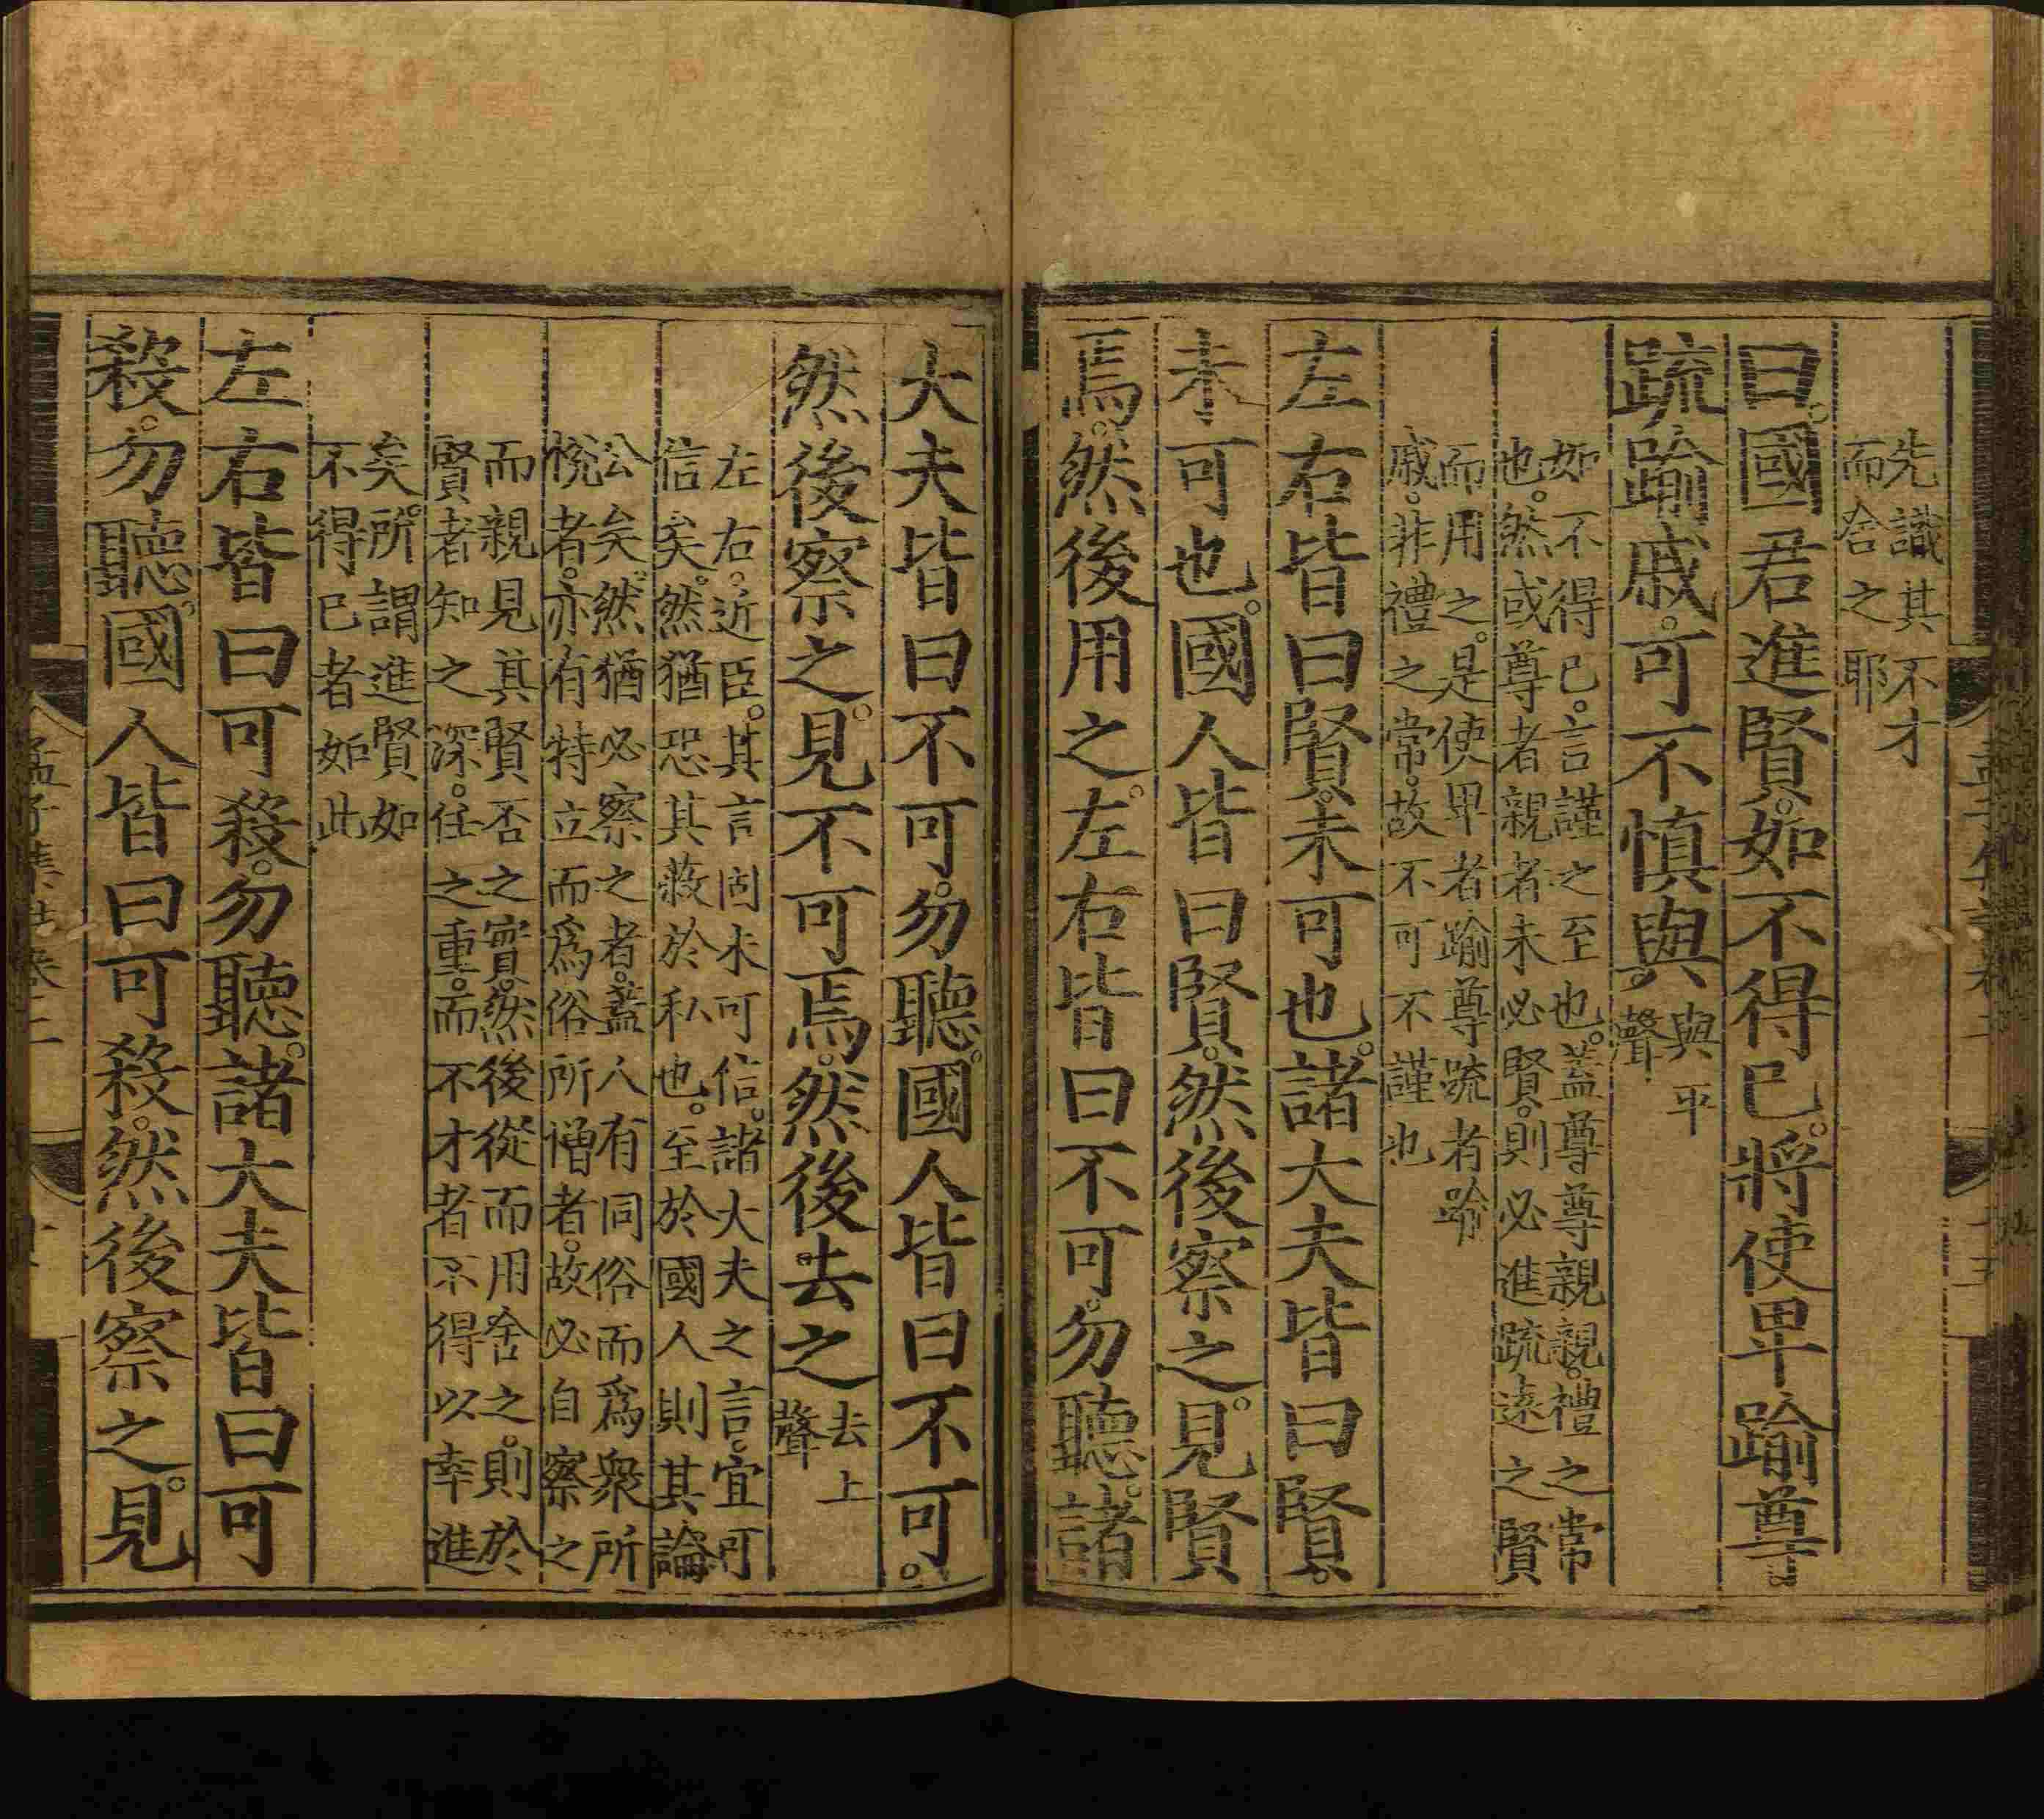 先識其不才
而舍之耶
曰。國君進賢。如不得已。將使卑踰尊。
疏踰戚。可不慎與。
與平
聲
如不得已。言謹之至也。蓋尊尊親親。禮之常
也。然或尊者親者未必賢。則必進疏遠之賢
而用之。是使卑者踰尊疏者踰
戚。非禮之常。故不可不謹也
左右皆曰賢。未可也。諸大夫皆曰賢。
未可也。國人皆曰賢。然後察之。見賢
焉。然後用之。左右皆曰不可。勿聽。諸
大夫皆曰不可。勿聽。國人皆曰不可。
然後察之。見不可焉。然後去之
去上
聲
左右。近臣。其言固未可信。諸大夫之言。宜可
信矣。然猶恐其蔽於私也。至於國人則其論
公矣。然猶必察之者。蓋人有同俗而為衆所
悅者。亦有特立而為俗所憎者。故必自察之
而親見其賢否之實。然後從而用舍之。則於
賢者知之深。任之重。而不才者不得以幸進
矣。所謂進賢如
不得已者如此
左右皆曰可殺。勿聽。諸大夫皆曰可
殺。勿聽。國人皆曰可殺。然後察之。見
孟子集註卷二